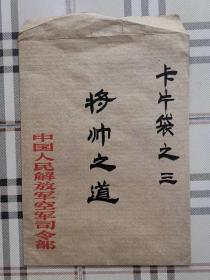 卡片袋之三
将帅之道
中国人民解放军空军司令部